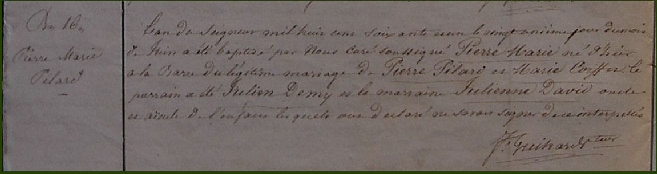 Bn de
Pierre Marie
Pélard
L'an du Seigneur mil huit cent soixante et un le vingt unième jour du mois
de Juin a été baptisé par Nous Curé soussigné Pierre Marie né d'hier
à la Barre du légitime mariage de Pierre Pélard et Marie Coiffer le
parrain a été Julien Demy et la marraine Julienne David oncle
et aïeule de l'enfant lesquels ont déclaré ne savoir signer de ce interpellés
Guihard